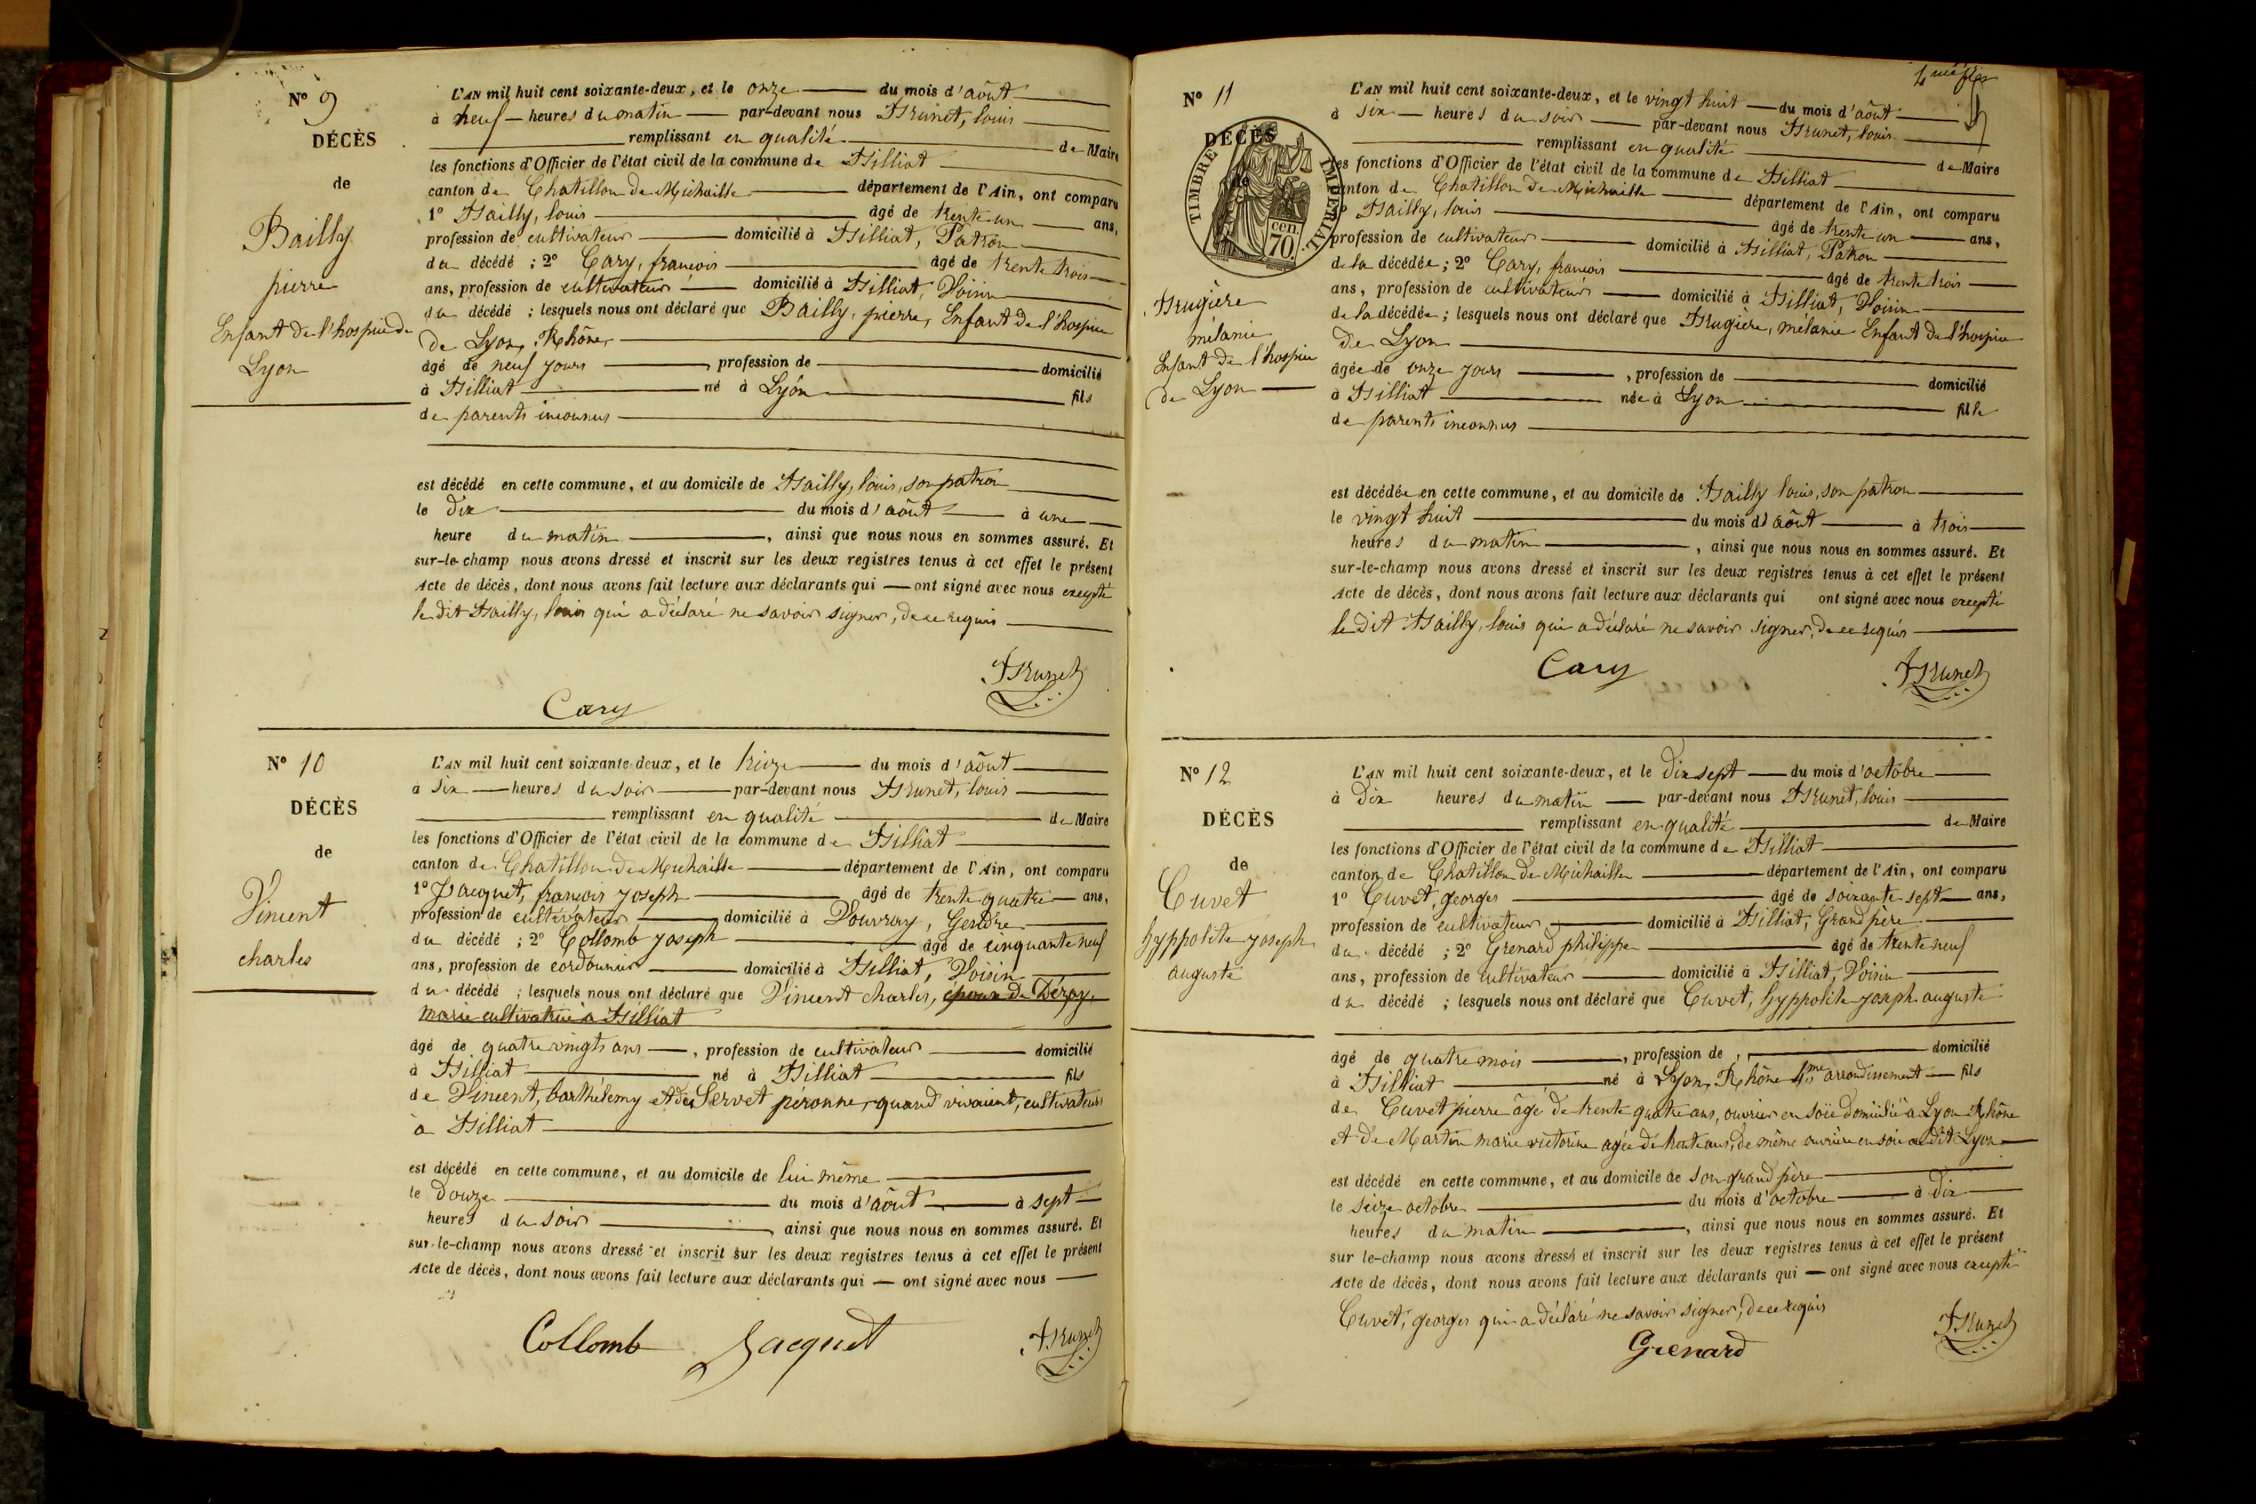 N° 9
DÉCÈS
de
Bailly
pierre
Enfant de l'hospice de
Lyon
L'AN mil huit cent soixante-deux, et le onze du mois d'août
à neuf heures du matin par-devant nous Brunet, louis
remplissant en qualité de Maire
les fonctions d'Officier de l'état civil de la commune de Billiat
canton de Chatillon de Michaille département de l'Ain, ont comparu
1° Bailly, louis âgé de trente un ans,
profession de cultivateur domicilié à Billiat, Patron
du décédé ; 2° Cary, françois âgé de trente trois
ans, profession de cultivateur domicilié à Billiat, Voisin
du décédé ; lesquels nous ont déclaré que Bailly, pierre, Enfant de l'hospice
de Lyon, Rhône
âgé de neuf jours , profession de domicilié
à Billiat né à Lyon fils
de parents inconnus
est décédé en cette commune, et au domicile de Bailly, louis, son patron
le dix du mois d'août à une
heure du matin , ainsi que nous nous en sommes assuré. Et
sur-le-champ nous avons dressé et inscrit sur les deux registres tenus à cet effet le présent
Acte de décès, dont nous avons fait lecture aux déclarants qui — ont signé avec nous excepté
le dit Bailly, louis qui a déclaré ne savoir signer, de ce requis
Brunet
Cary
N° 10
DÉCÈS
de
Vincent
charles
L'AN mil huit cent soixante-deux, et le treize du mois d'août
à six heures du soir par-devant nous Brunet, louis
remplissant en qualité de Maire
les fonctions d'Officier de l'état civil de la commune de Billiat
canton de Chatillon de Michaille département de l'Ain, ont comparu
1° Jacquet, françois joseph âgé de trente quatre ans,
profession de cultivateur domicilié à Vouvray, Gendre
du décédé ; 2° Collomb joseph âgé de cinquante neuf
ans, profession de cordonnier domicilié à Billiat, Voisin
du décédé ; lesquels nous ont déclaré que Vincent charles, époux de
marie cultivatrice à Billiat
âgé de quatre vingts ans , profession de cultivateur domicilié
à Billiat né à Billiat fils
de Vincent, barthélemy et de Servet péronne, quand vivaient, cultivateurs
à Billiat
est décédé en cette commune, et au domicile de lui même
le douze du mois d'août à sept
heures du soir , ainsi que nous nous en sommes assuré. Et
sur-le-champ nous avons dressé et inscrit sur les deux registres tenus à cet effet le présent
Acte de décès, dont nous avons fait lecture aux déclarants qui — ont signé avec nous
Collomb Jacquet Brunet
N° 11
DÉCÈS
de
TIMBRE IMPÉRIAL
70 cen.
Brugière
mélanie
Enfant de l'hospice
de Lyon
L'AN mil huit cent soixante-deux, et le vingt huit du mois d'août
à six heures du soir par-devant nous Brunet, louis
remplissant en qualité de Maire
les fonctions d'Officier de l'état civil de la commune de Billiat
canton de Chatillon de Michaille département de l'Ain, ont comparu
1° Bailly, louis âgé de trente un ans,
profession de cultivateur domicilié à Billiat, Patron
de la décédée ; 2° Cary, françois âgé de trente trois
ans, profession de cultivateur domicilié à Billiat, Voisin
de la décédée ; lesquels nous ont déclaré que Brugière, mélanie Enfant de l'hospice
de Lyon
âgée de onze jours , profession de domicilié
à Billiat née à Lyon fille
de parents inconnus
est décédée en cette commune, et au domicile de Bailly louis, son patron
le vingt huit du mois d'août à trois
heures du matin , ainsi que nous nous en sommes assuré. Et
sur-le-champ nous avons dressé et inscrit sur les deux registres tenus à cet effet le présent
Acte de décès, dont nous avons fait lecture aux déclarants qui ont signé avec nous excepté
le dit Bailly, louis qui a déclaré ne savoir signer, de ce requis
Cary Brunet
N° 12
DÉCÈS
de
Cuvet
hyppolite joseph
auguste
L'AN mil huit cent soixante-deux, et le dix sept du mois d'octobre
à dix heures du matin par-devant nous Brunet, louis
remplissant en qualité de Maire
les fonctions d'Officier de l'état civil de la commune de Billiat
canton de Chatillon de Michaille département de l'Ain, ont comparu
1° Cuvet, georges âgé de soixante sept ans,
profession de cultivateur domicilié à Billiat, Grand père
du décédé ; 2° Grenard philippe âgé de trente neuf
ans, profession de cultivateur domicilié à Billiat, Voisin
du décédé ; lesquels nous ont déclaré que Cuvet, hyppolite joseph auguste
âgé de quatre mois , profession de domicilié
à Billiat né à Lyon, Rhône 4me arrondissement fils
de Cuvet pierre âgé de trente quatre ans, ouvrier en soie domicilié à Lyon Rhône
et de Martin marie victorine agée de trente ans, de même ouvrière en soie au dit Lyon
est décédé en cette commune, et au domicile de son grand père
le seize octobre du mois d'octobre à dix
heures du matin , ainsi que nous nous en sommes assuré. Et
sur le-champ nous avons dressé et inscrit sur les deux registres tenus à cet effet le présent
Acte de décès, dont nous avons fait lecture aux déclarants qui — ont signé avec nous excepté
Cuvet, georges qui a déclaré ne savoir signer, de ce requis
Grenard Brunet